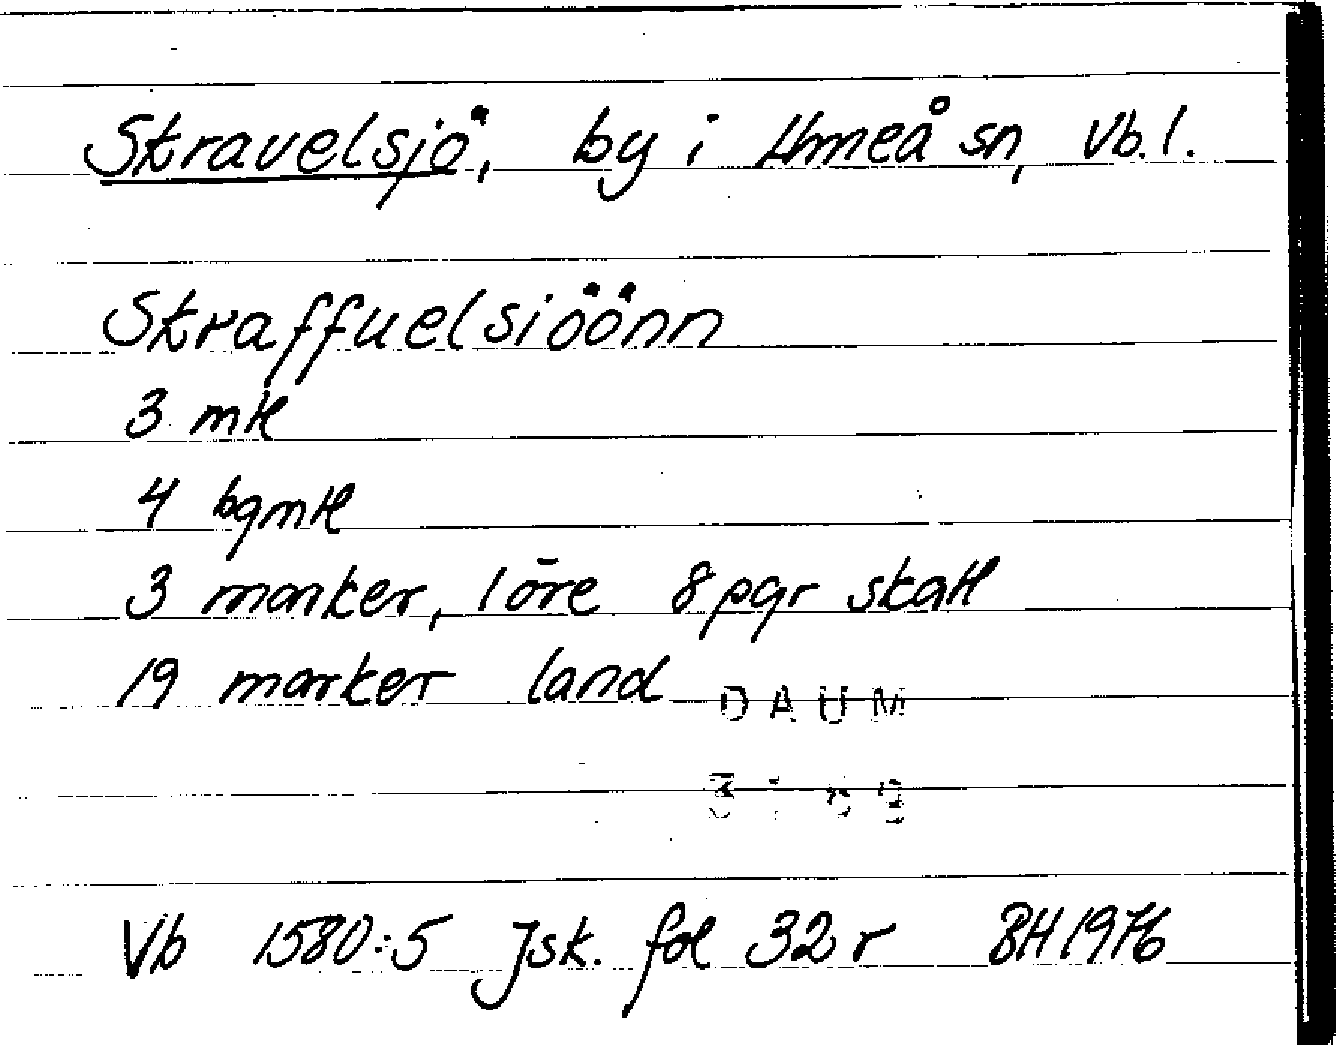 Stravelsjö, by i Umeå sn, Vb. l.
Straffuelsiöönn
3 mtl
4 bgmtl
3 marker, 1 öre 8 pgr skatt
19 marker land
DAUM
Vb 1580:5 Jsk. fol 32 r BH 1976